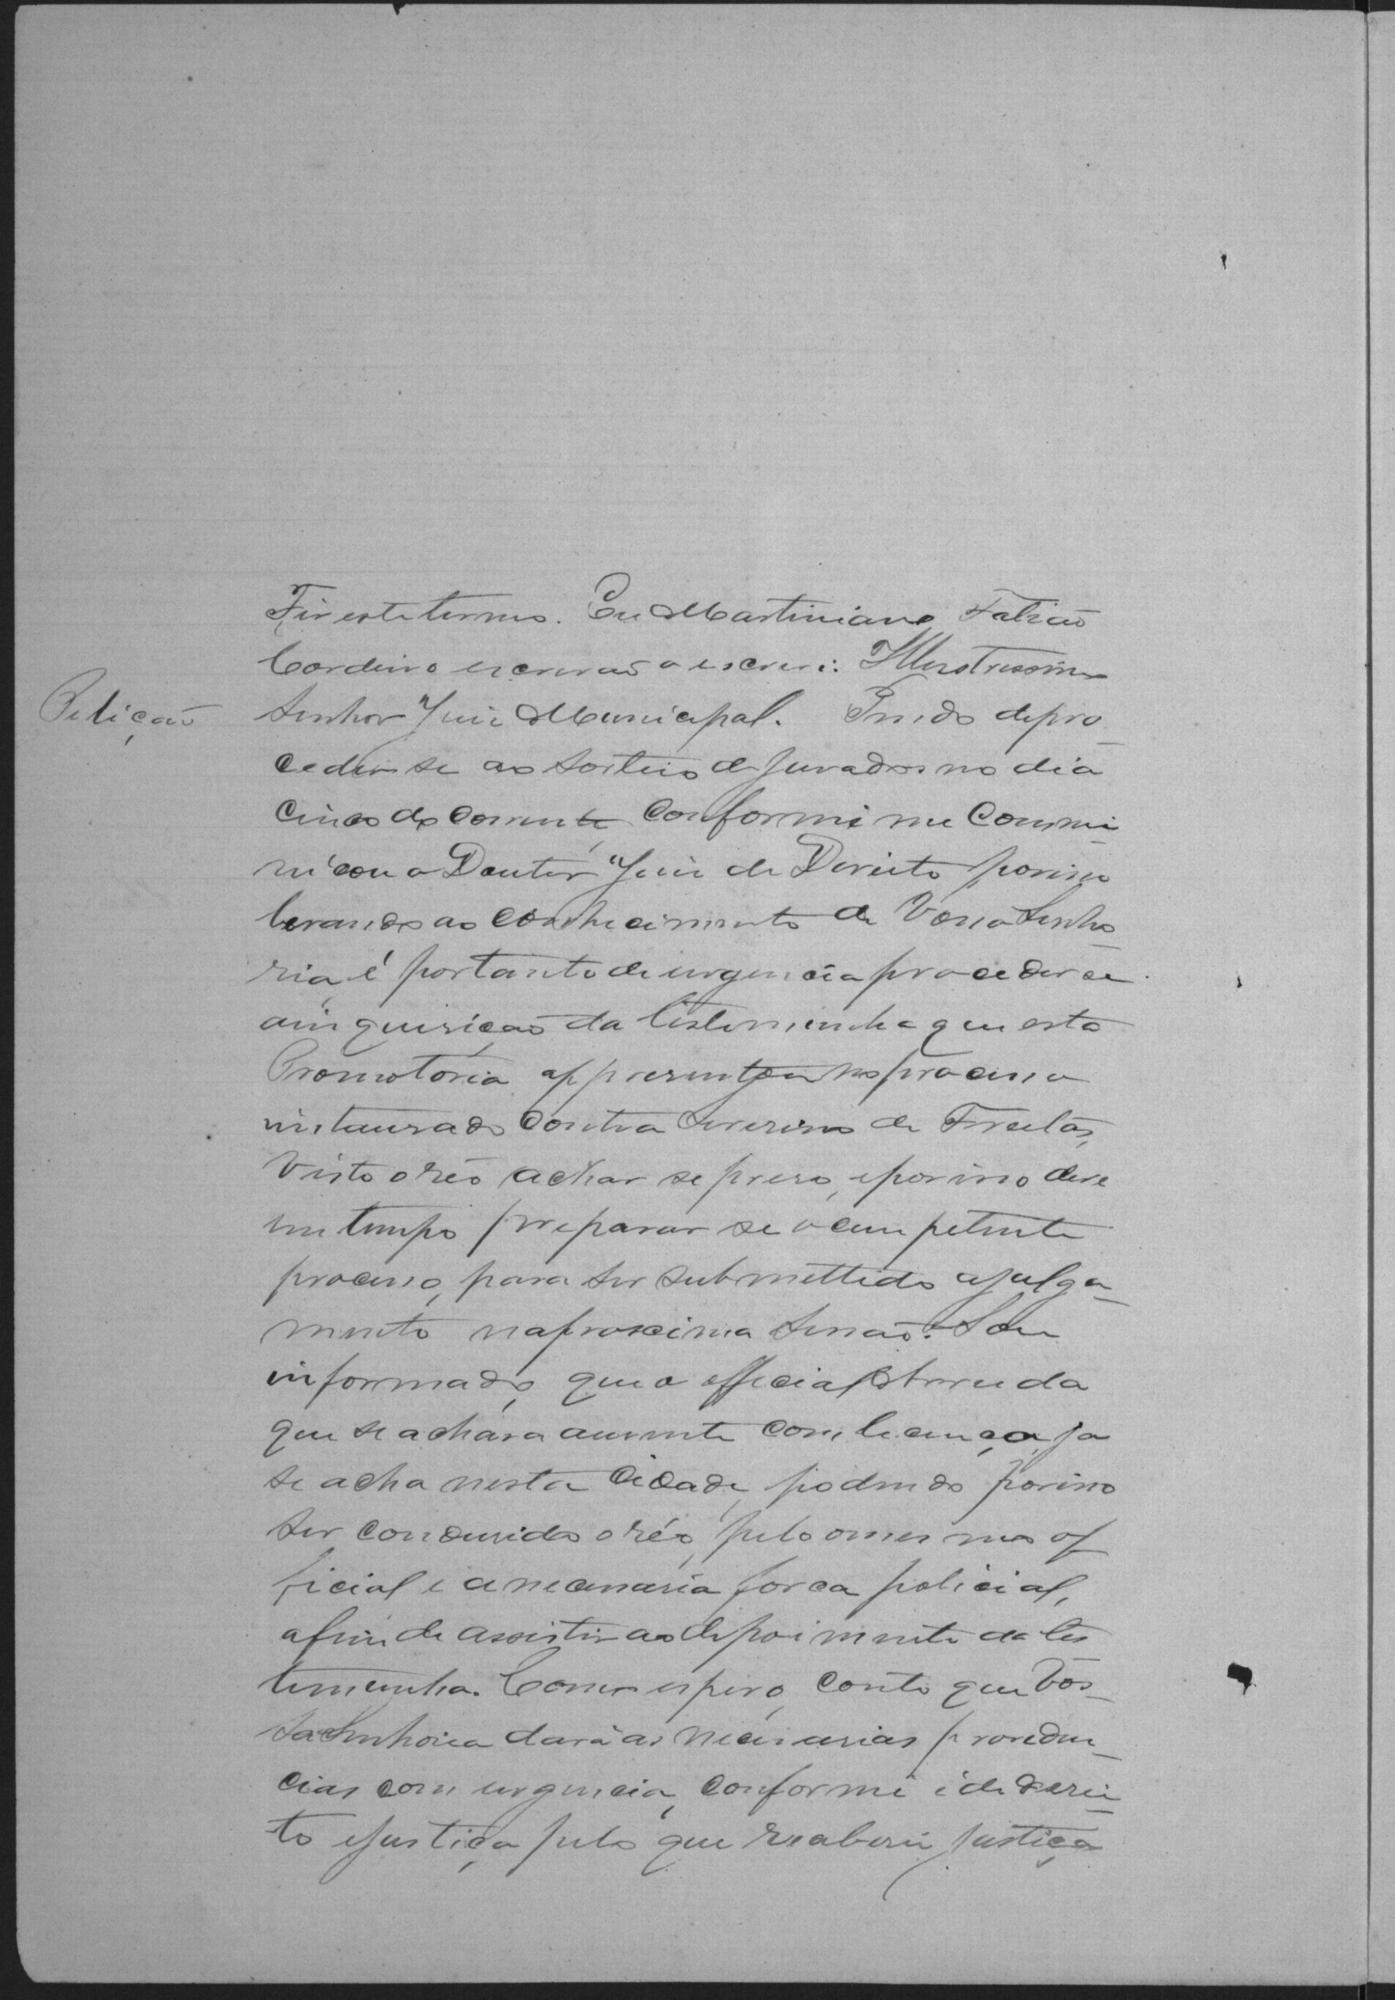 Fiz este termo. Eu Martiniano Falcão
Cordeiro escrivão o escrevi. Illustrissimo
Petição
Senhor Juiz Municipal. Tendo de pro
ceder se ao sorteio de jurados no dia
cinco do corrente, conforme me commu
nicou o Doutor Juiz de Direito, por isso
levando ao conhecimento de Vossa Senho
ria, é portanto de urgencia proceder se
a inquirição da testemunha que esta
Promotoria appresentou no processo
instaurado contra Severino de Freitas,
visto o réo achar se preso, e por isso deve
em tempo preparar se o competente
processo, para ser submettido a julga
mento na proxima sessão. Sou
informado, que o official Arruda
que se achava ausente com licença, ja
se acha nesta cidade, podendo por isso
ser condusido o réo, pelo o mesmo of
ficial e a necessaria força policial,
afim de assistir ao depoimento da tes
temunha. Como espero, conto que Vos
sa Senhoria dará as necessarias providen
cias com urgencia, conforme é de direi
to e justiça pelo que receberá justiça